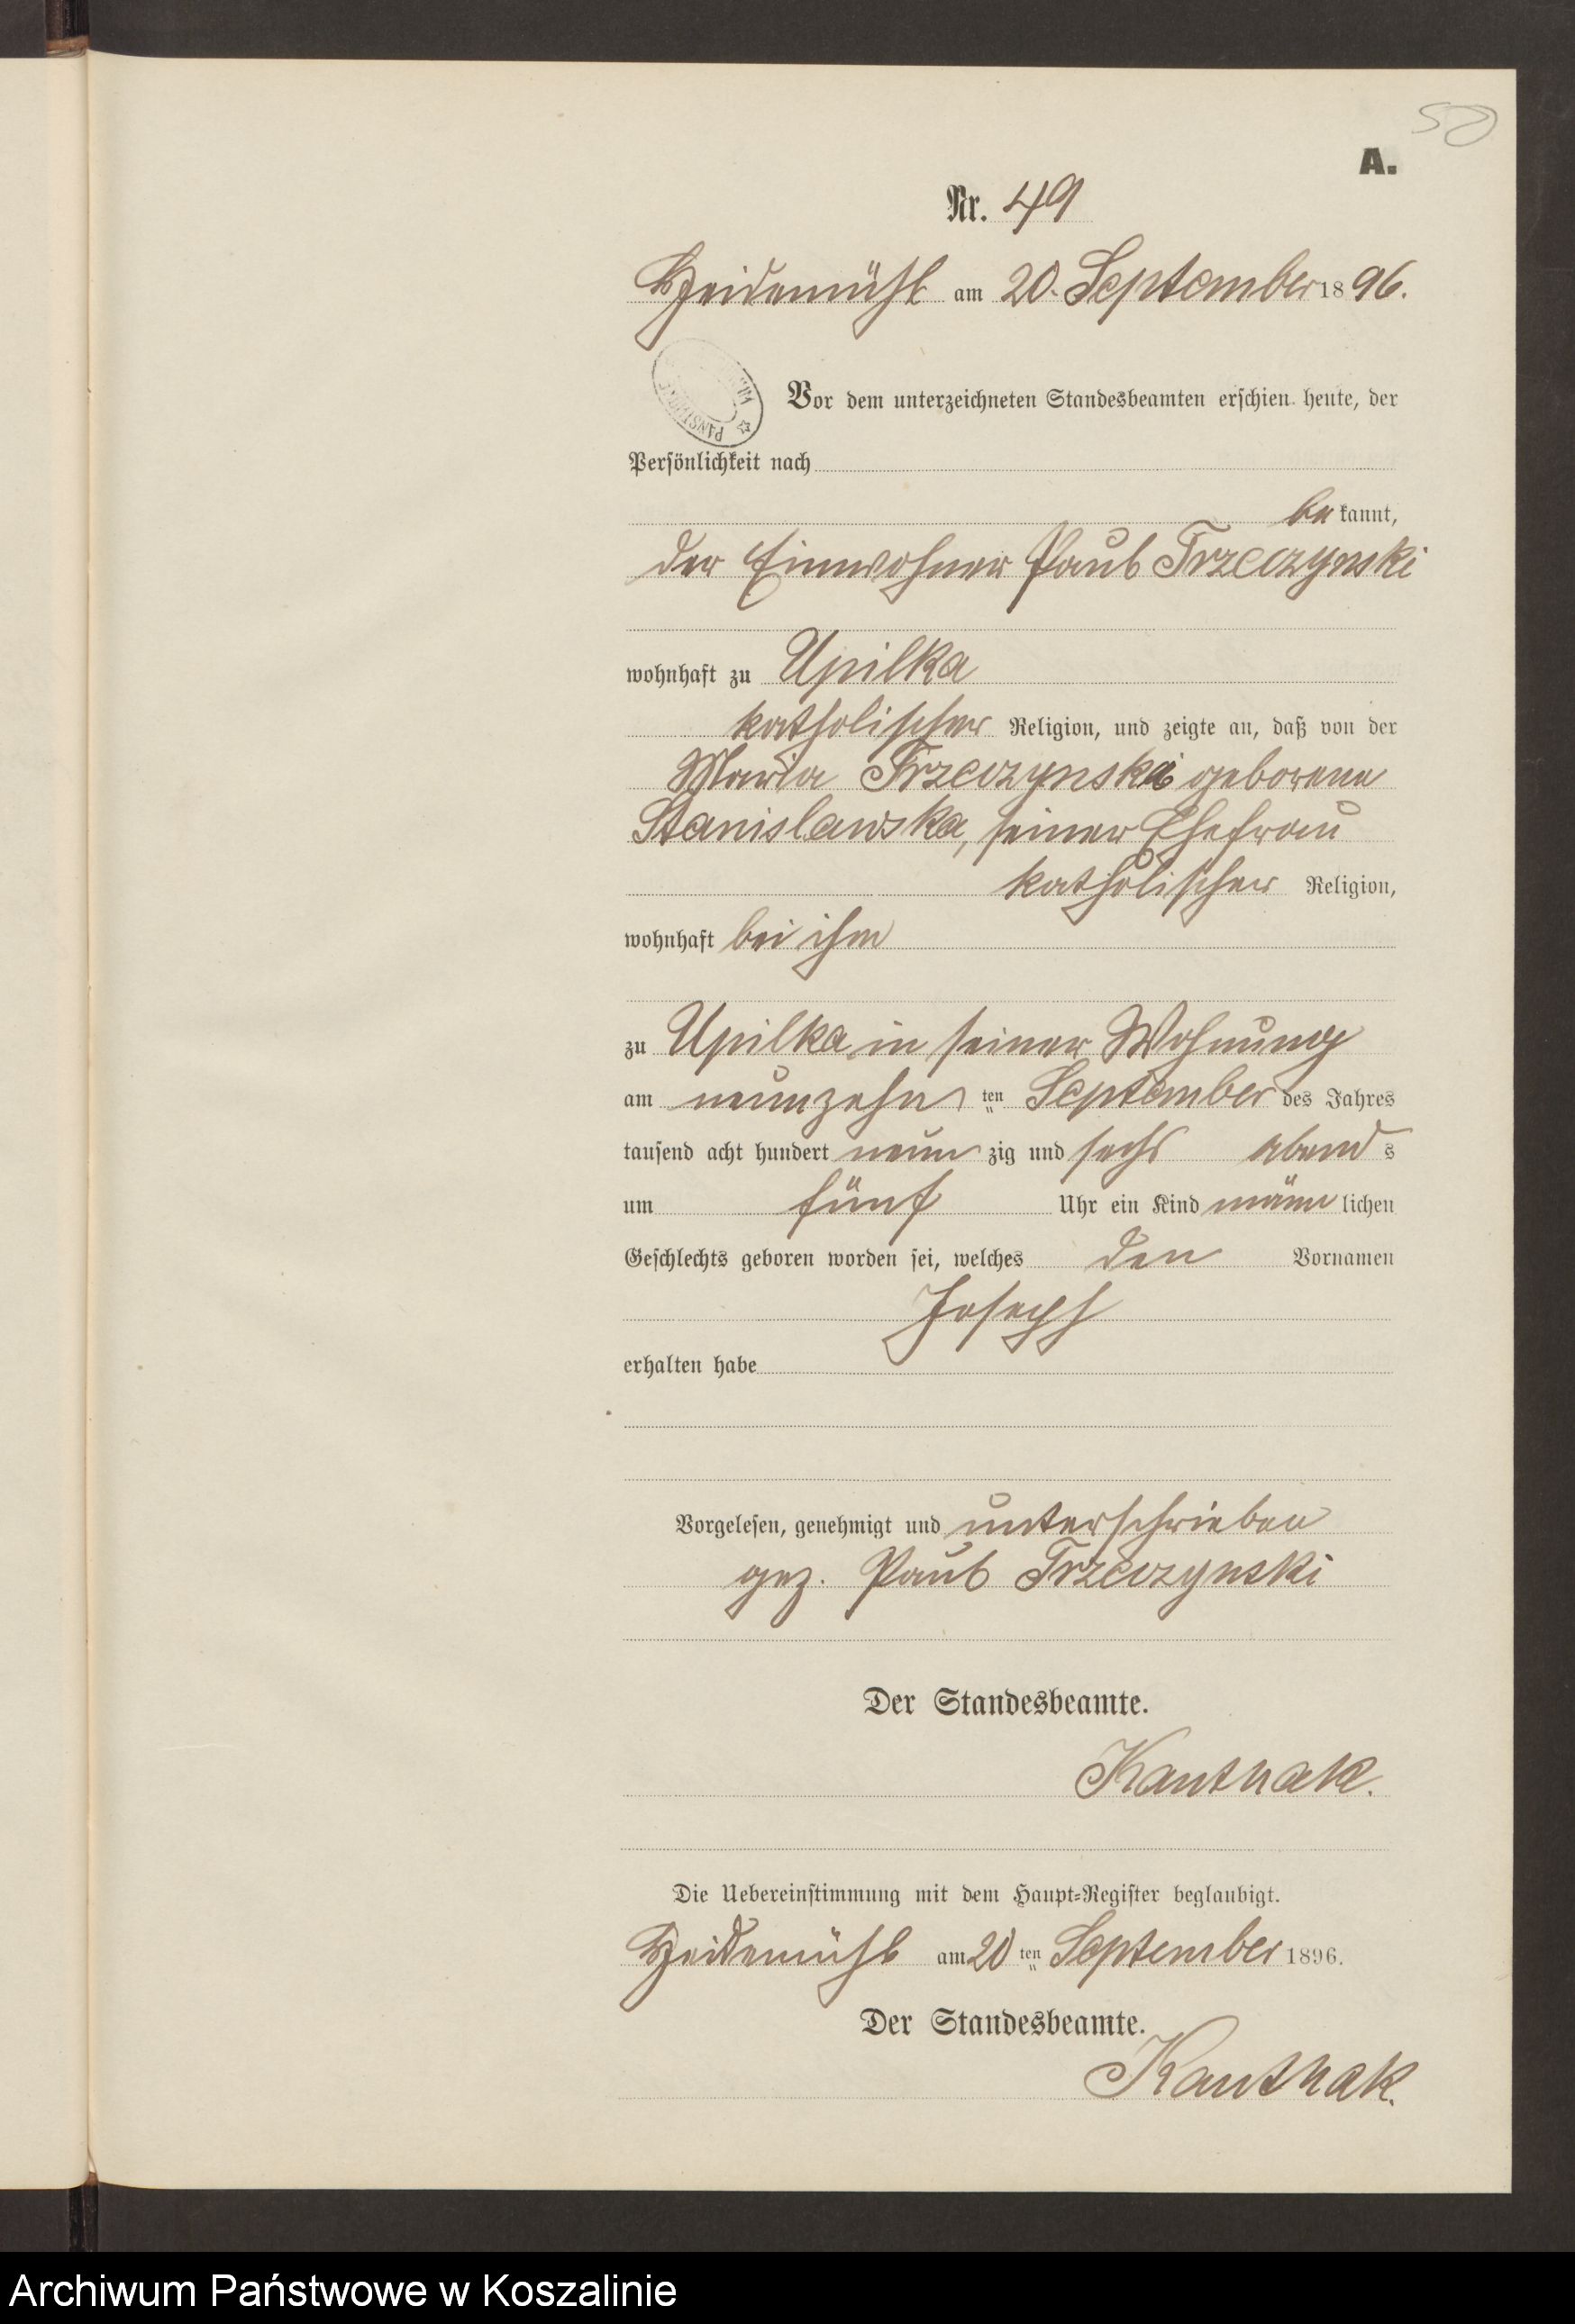 50
A.
Nr. 49
Heidemühl am 20. September 1896.
Vor dem unterzeichneten Standesbeamten erschien heute, der
Persönlichkeit nach
be kannt,
der Einwohner Paul Trzeczynski
wohnhaft zu Upilka
katholischer Religion, und zeigte an, daß von der
Maria Trzeczynska geborene
Stanislawska, seiner Ehefrau
katholischer Religion,
wohnhaft bei ihm
zu Upilka in seiner Wohnung
am neunzehn ten September des Jahres
tausend acht hundert neun zig und sechs abend s
um fünf Uhr ein Kind männ lichen
Geschlechts geboren worden sei, welches den Vornamen
Joseph
erhalten habe
Vorgelesen, genehmigt und unterschrieben
gez. Paul Trzeczynski
Der Standesbeamte.
Kanthak.
Die Uebereinstimmung mit dem Haupt-Register beglaubigt.
Heidemühl am 20 ten September 1896.
Der Standesbeamte.
Kanthak.
Archiwum Państwowe w Koszalinie